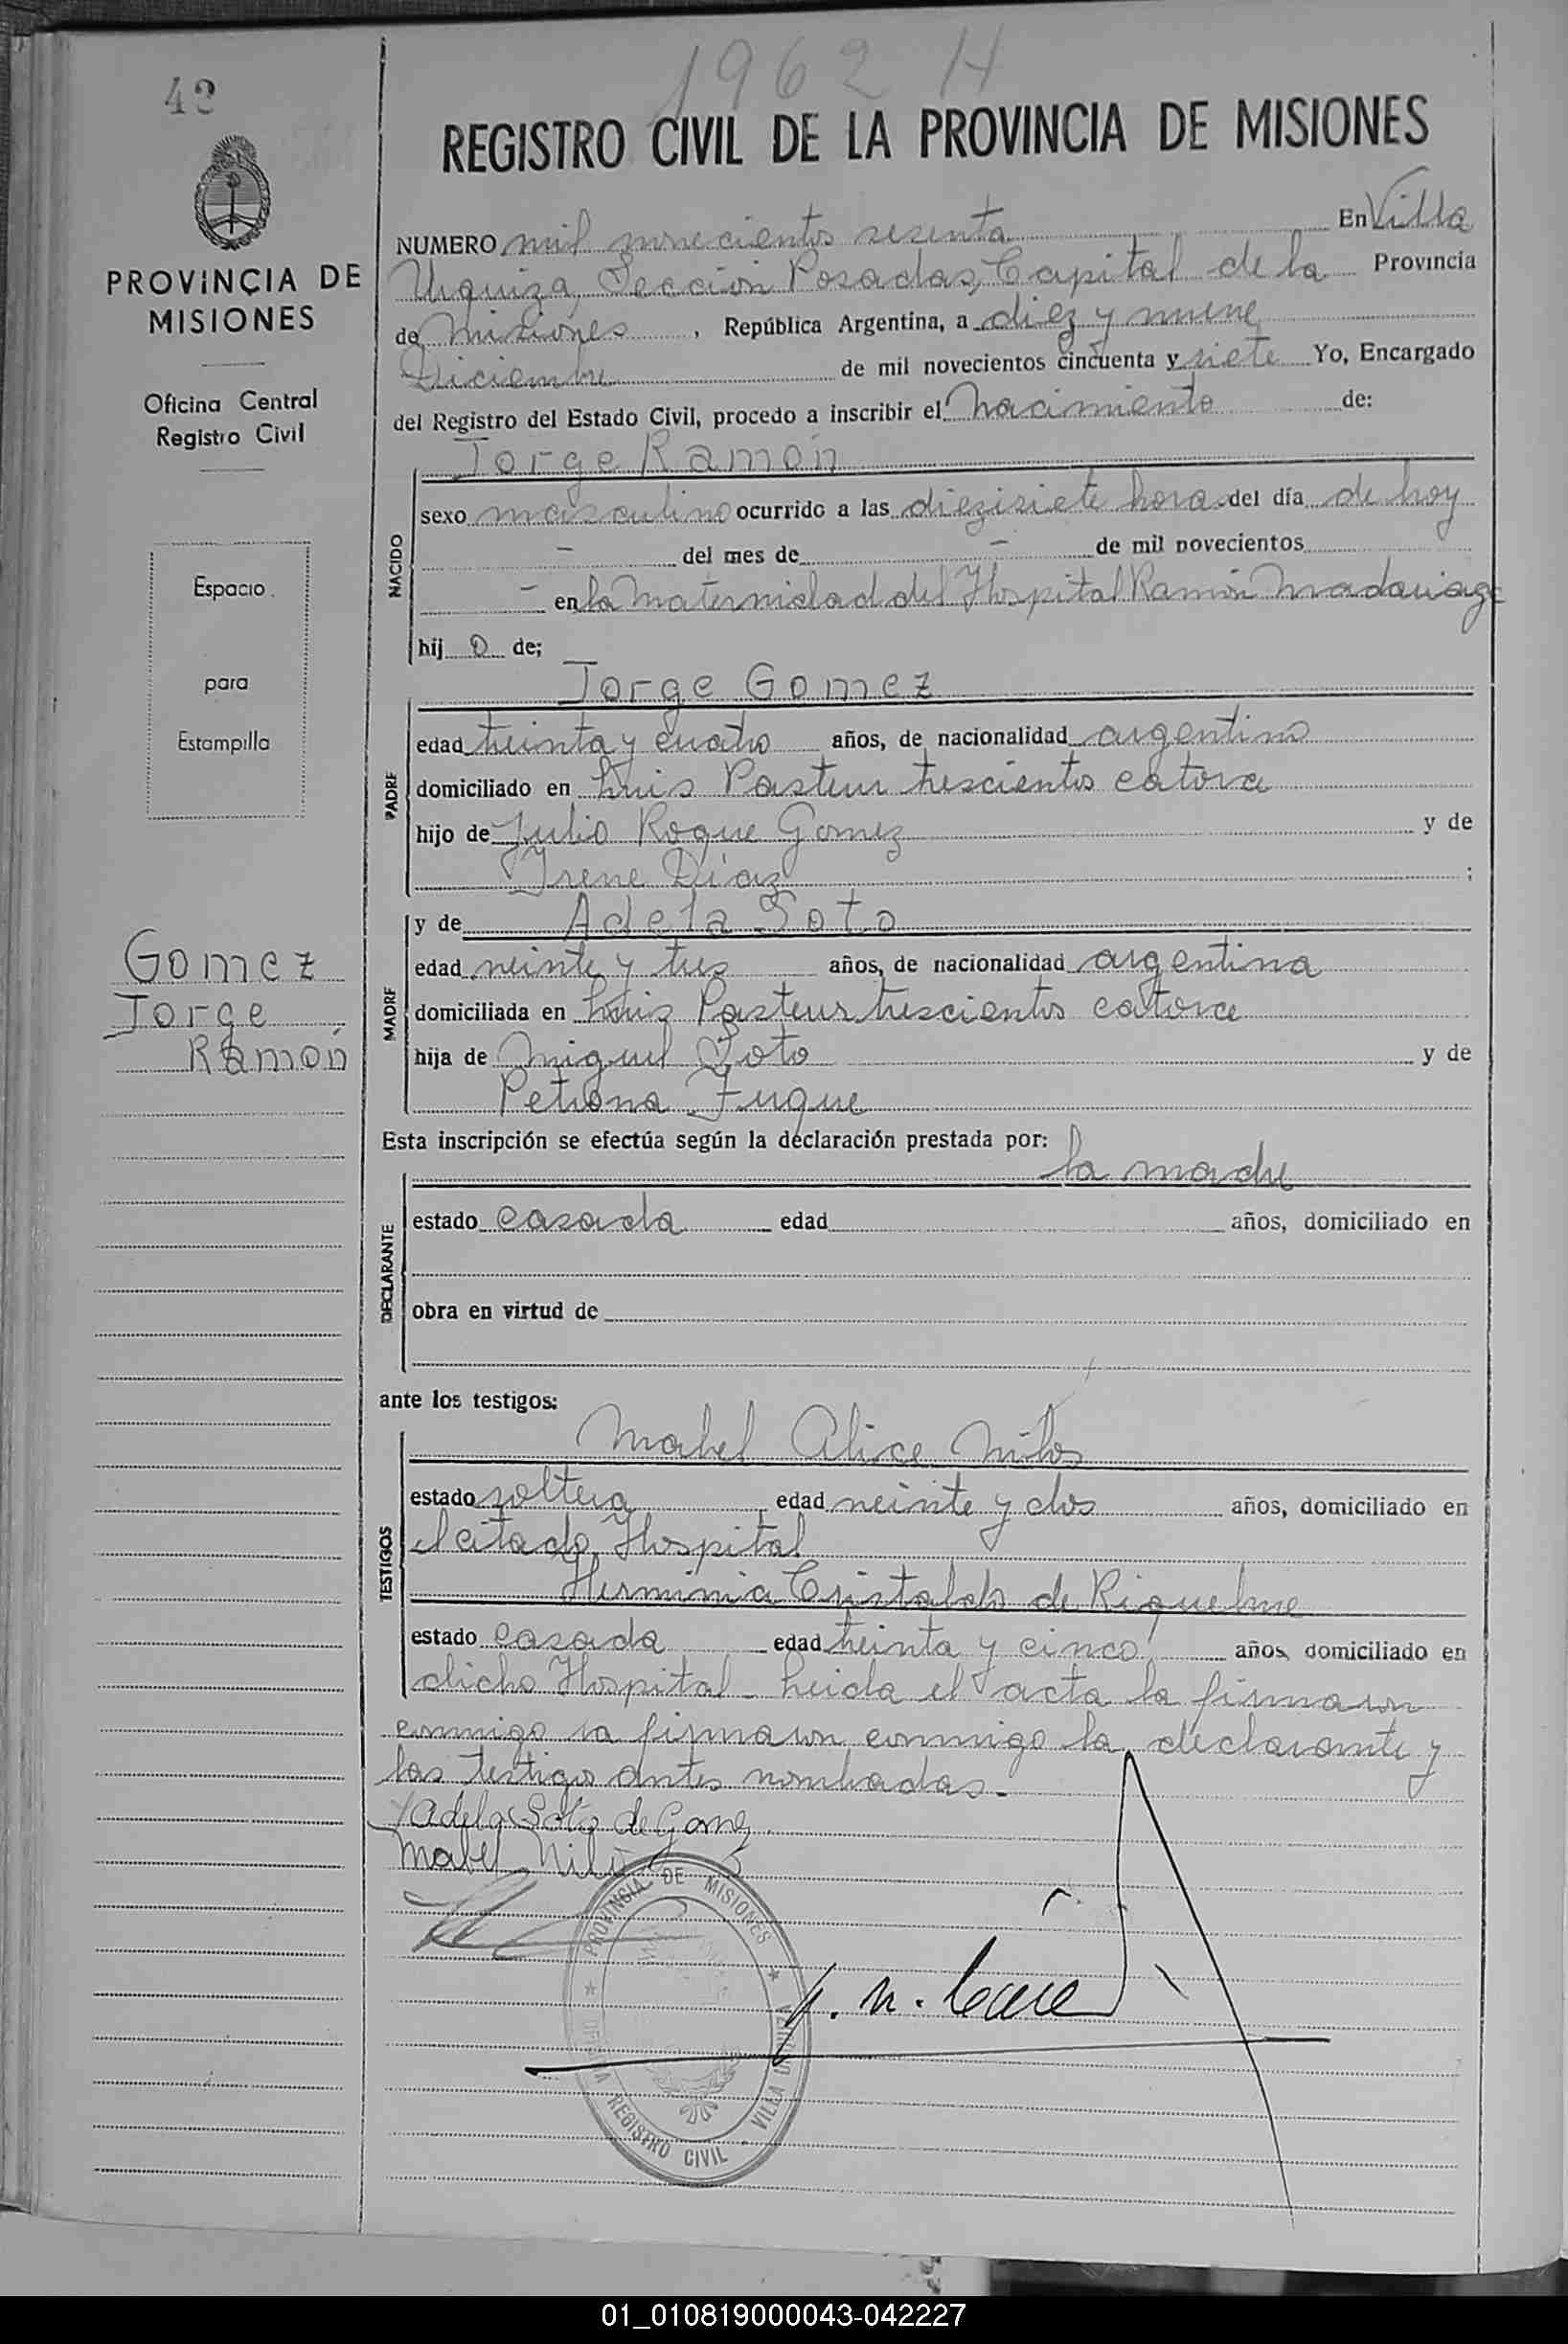 1962 H
42
REGISTRO CIVIL DE LA PROVINCIA DE MISIONES
PROVINCIA DE
MISIONES
Oficina Central
Registro Civil
Espacio
para
Estampilla
Gomez
Jorge
Ramón
NUMERO mil novecientos sesenta En Villa
Urquiza, Sección Posadas, Capital de la Provincia
de Misiones, República Argentina, a diez y nueve
Diciembre de mil novecientos cincuenta y siete Yo, Encargado
del Registro del Estado Civil, procedo a inscribir el nacimiento de:
Jorge Ramón
NACIDO
sexo masculino ocurrido a las diezisiete horas del día de hoy
- del mes de - de mil novecientos
- en la Maternidad del Hospital Ramón Madariaga
hij o de;
Jorge Gomez
PADRE
edad treinta y cuatro años, de nacionalidad argentino
domiciliado en Luis Pasteur trescientos catorce
hijo de Julio Roque Gomez y de
Irene Díaz ;
y de Adela Soto
MADRE
edad veinte y tres años, de nacionalidad argentina
domiciliada en Luis Pasteur trescientos catorce
hija de Miguel Soto y de
Petrona Fuque
Esta inscripción se efectúa según la declaración prestada por:
la madre
DECLARANTE
estado casada edad años, domiciliado en
obra en virtud de
ante los testigos:
Mabel Alice Nilos
TESTIGOS
estado soltera edad veinte y dos años, domiciliado en
el citado Hospital
Herminia Cristaldo de Riquelme
estado casada edad treinta y cinco años domiciliado en
dicho Hospital - Leida el acta la firmaron
conmigo la firmaron conmigo la declarante y
las testigos antes nombradas.-
Adela Soto de Gomez
Mabel
PROVINCIA DE MISIONES
OFICINA REGISTRO CIVIL VILLA URQUIZA
01_010819000043-042227